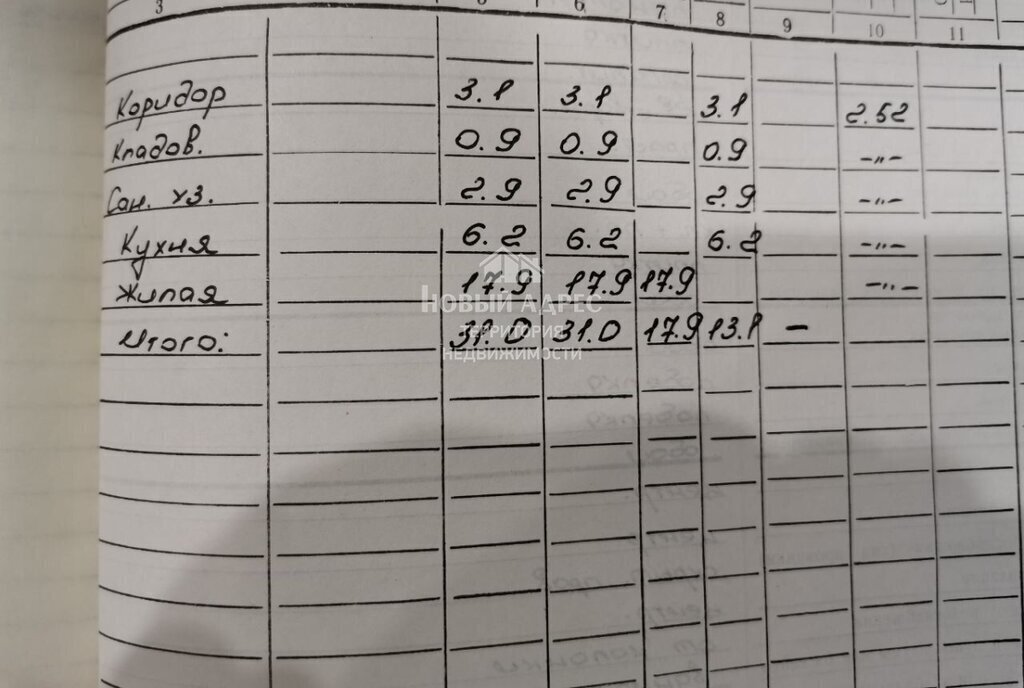 3 5 6 7 8 9 10 11
Коридор 3.1 3.1 3.1 2.52
Кладов. 0.9 0.9 0.9 -"-
Сан. уз. 2.9 2.9 2.9 -"-
Кухня 6.2 6.2 6.2 -"-
Жилая 17.9 17.9 17.9 -"-
Итого: 31.0 31.0 17.9 13.1 -
НОВЫЙ АДРЕС
ТЕРРИТОРИЯ
НЕДВИЖИМОСТИ